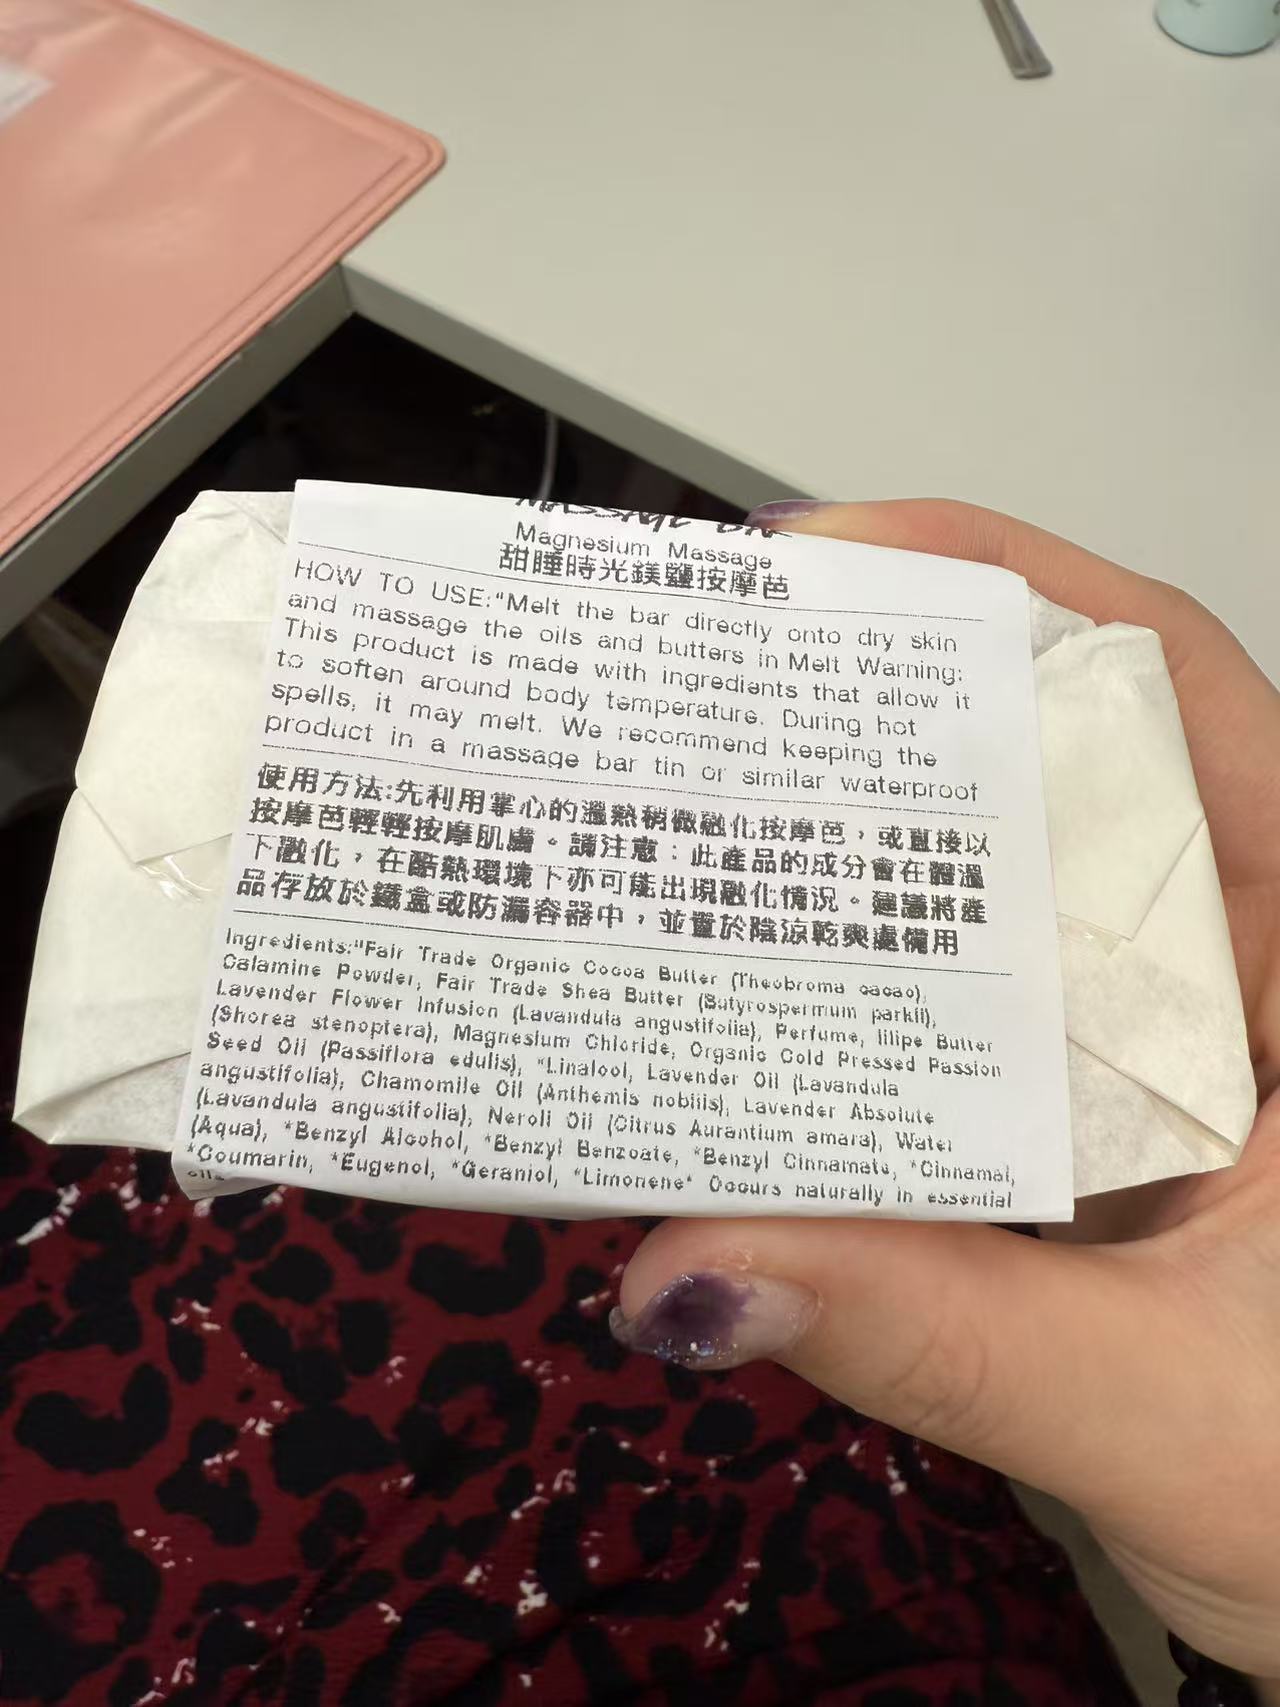 MASSAGE BAR
Magnesium Massage
甜睡時光鎂鹽按摩芭
HOW TO USE:"Melt the bar directly onto dry skin
and massage the oils and butters in Melt Warning:
This product is made with ingredients that allow it
to soften around body temperature. During hot
spells, it may melt. We recommend keeping the
product in a massage bar tin or similar waterproof
使用方法:先利用掌心的溫熱稍微融化按摩芭，或直接以
按摩芭輕輕按摩肌膚。請注意：此產品的成分會在體溫
下融化，在酷熱環境下亦可能出現融化情況。建議將產
品存放於鐵盒或防漏容器中，並置於陰涼乾爽處備用
Ingredients:"Fair Trade Organic Cocoa Butter (Theobroma cacao),
Calamine Powder, Fair Trade Shea Butter (Butyrospermum parkii),
Lavender Flower Infusion (Lavandula angustifolia), Perfume, Illipe Butter
(Shorea stenoptera), Magnesium Chloride, Organic Cold Pressed Passion
Seed Oil (Passiflora edulis), *Linalool, Lavender Oil (Lavandula
angustifolia), Chamomile Oil (Anthemis nobilis), Lavender Absolute
(Lavandula angustifolia), Neroli Oil (Citrus Aurantium amara), Water
(Aqua), *Benzyl Alcohol, *Benzyl Benzoate, *Benzyl Cinnamate, *Cinnamal,
*Coumarin, *Eugenol, *Geraniol, *Limonene* Occurs naturally in essential
oils